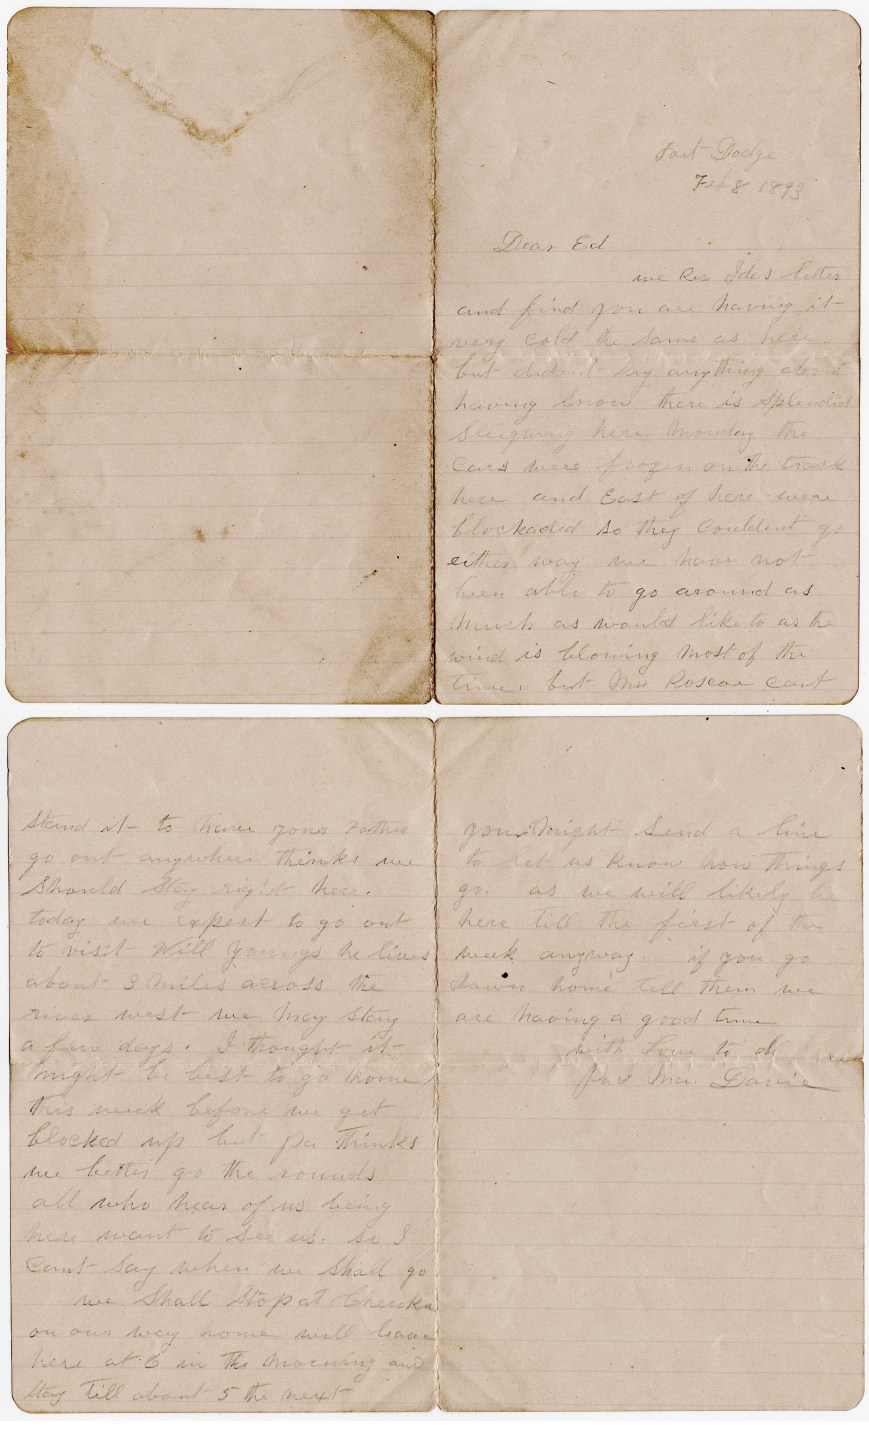 Fort Dodge
Feb 8 1893
Dear Ed
we Rec Idas letter
and find you are having it
very cold the same as here
but didn't say anything about
having snow there is splendid
sleighing here Monday the
cars were frozen on the track
here and East of here were
blockaded so they couldent go
either way we have not
been able to go around as
much as would like to as the
wind is blowing most of the
time. but Mrs Roscoe cant
stand it to have your Father
go out anywhere thinks we
should stay right here.
today we expect to go out
to visit Will Youngs he lives
about 3 miles across the
river west we may stay
a few days. I thought it
might be best to go home
this week before we get
blocked up but pa thinks
we better go the rounds
all who hear of us being
here want to see us. so I
cant say when we shall go
we shall stop at Cherokee
on our way home will leave
here at 6 in the morning and
stay till about 5 the next
you might send a line
to let us know how things
go. as we will likely be
here till the first of the
week anyway if you go
down home tell them we
are having a good time
with Love to all
Pa & Ma Davie